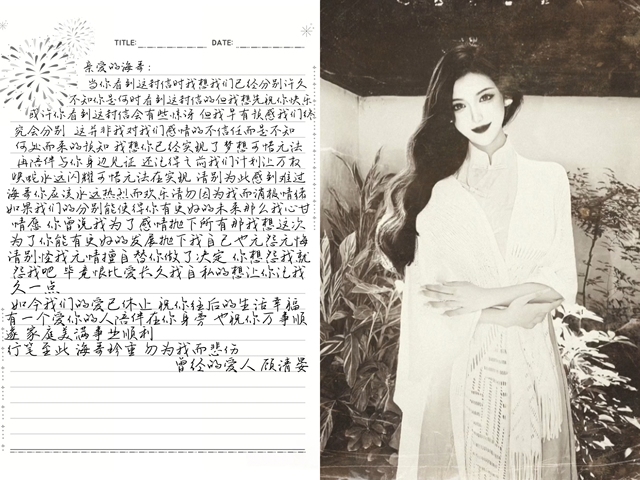 TITLE: DATE:
亲爱的海哥:
当你看到这封信时我想我们已经分别许久
不知你是何时看到这封信的但我想先祝你快乐
或许你看到这封信会有些惊讶 但我早有预感我们终
究会分别 这并非我对我们感情的不信任而是不知
何处而来的预知 我想你已经实现了梦想可惜无法
再陪伴与你身边见证 还记得之前我们计划让万权
映蛇永远闪耀可惜无法在实现 请别为此感到难过
海哥你应该永远热烈而欢乐请勿因为我而消极情绪
如果我们的分别能使得你有更好的未来那么我心甘
情愿 你曾说我为了感情抛下所有那我想这次
为了你能有更好的发展抛下我自己也无怨无悔
请别怪我无情擅自替你做了决定 你想怨我就
怨我吧 毕竟恨比爱长久我自私的想让你记我
久一点
如今我们的爱已休止 祝你往后的生活幸福
有一个爱你的人陪伴在你身旁 也祝你万事顺
遂 家庭美满事业顺利
行笔至此 海哥珍重 勿为我而悲伤
曾经的爱人 顾清晏